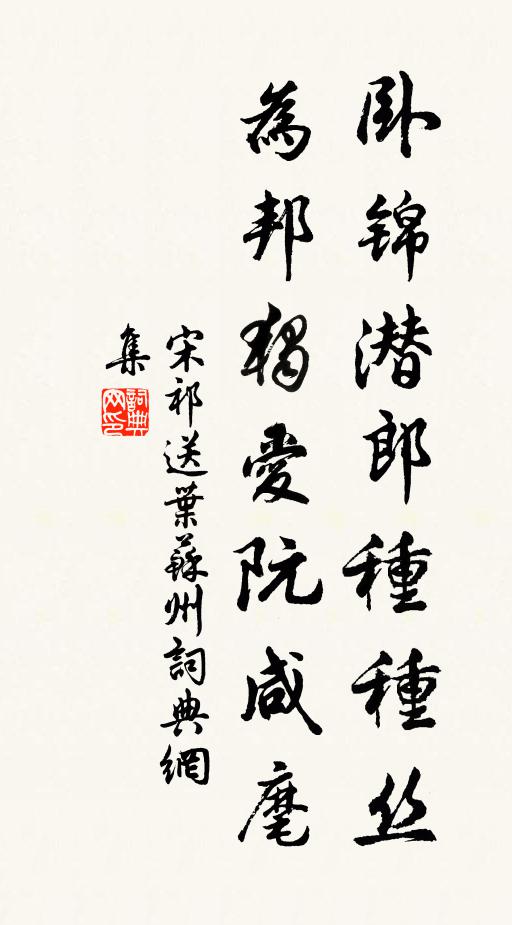 卧锦潜郎種種丝
為邦獨愛阮咸麾
宋祁送葉蘇州詞典網
集
詞典
网印